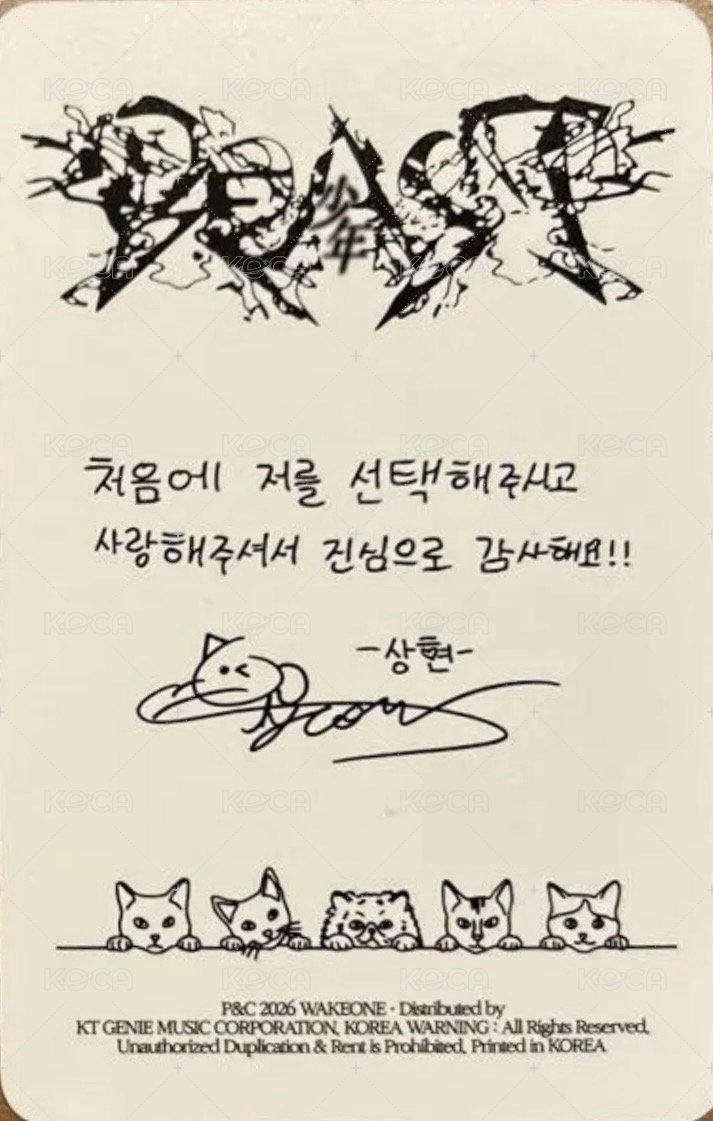 BEAST
少年
처음에 저를 선택해주시고
사랑해주셔서 진심으로 감사해요!!
-상현-
P&C 2026 WAKEONE · Distributed by
KT GENIE MUSIC CORPORATION, KOREA WARNING : All Rights Reserved,
Unauthorized Duplication & Rent is Prohibited, Printed in KOREA
KOCA